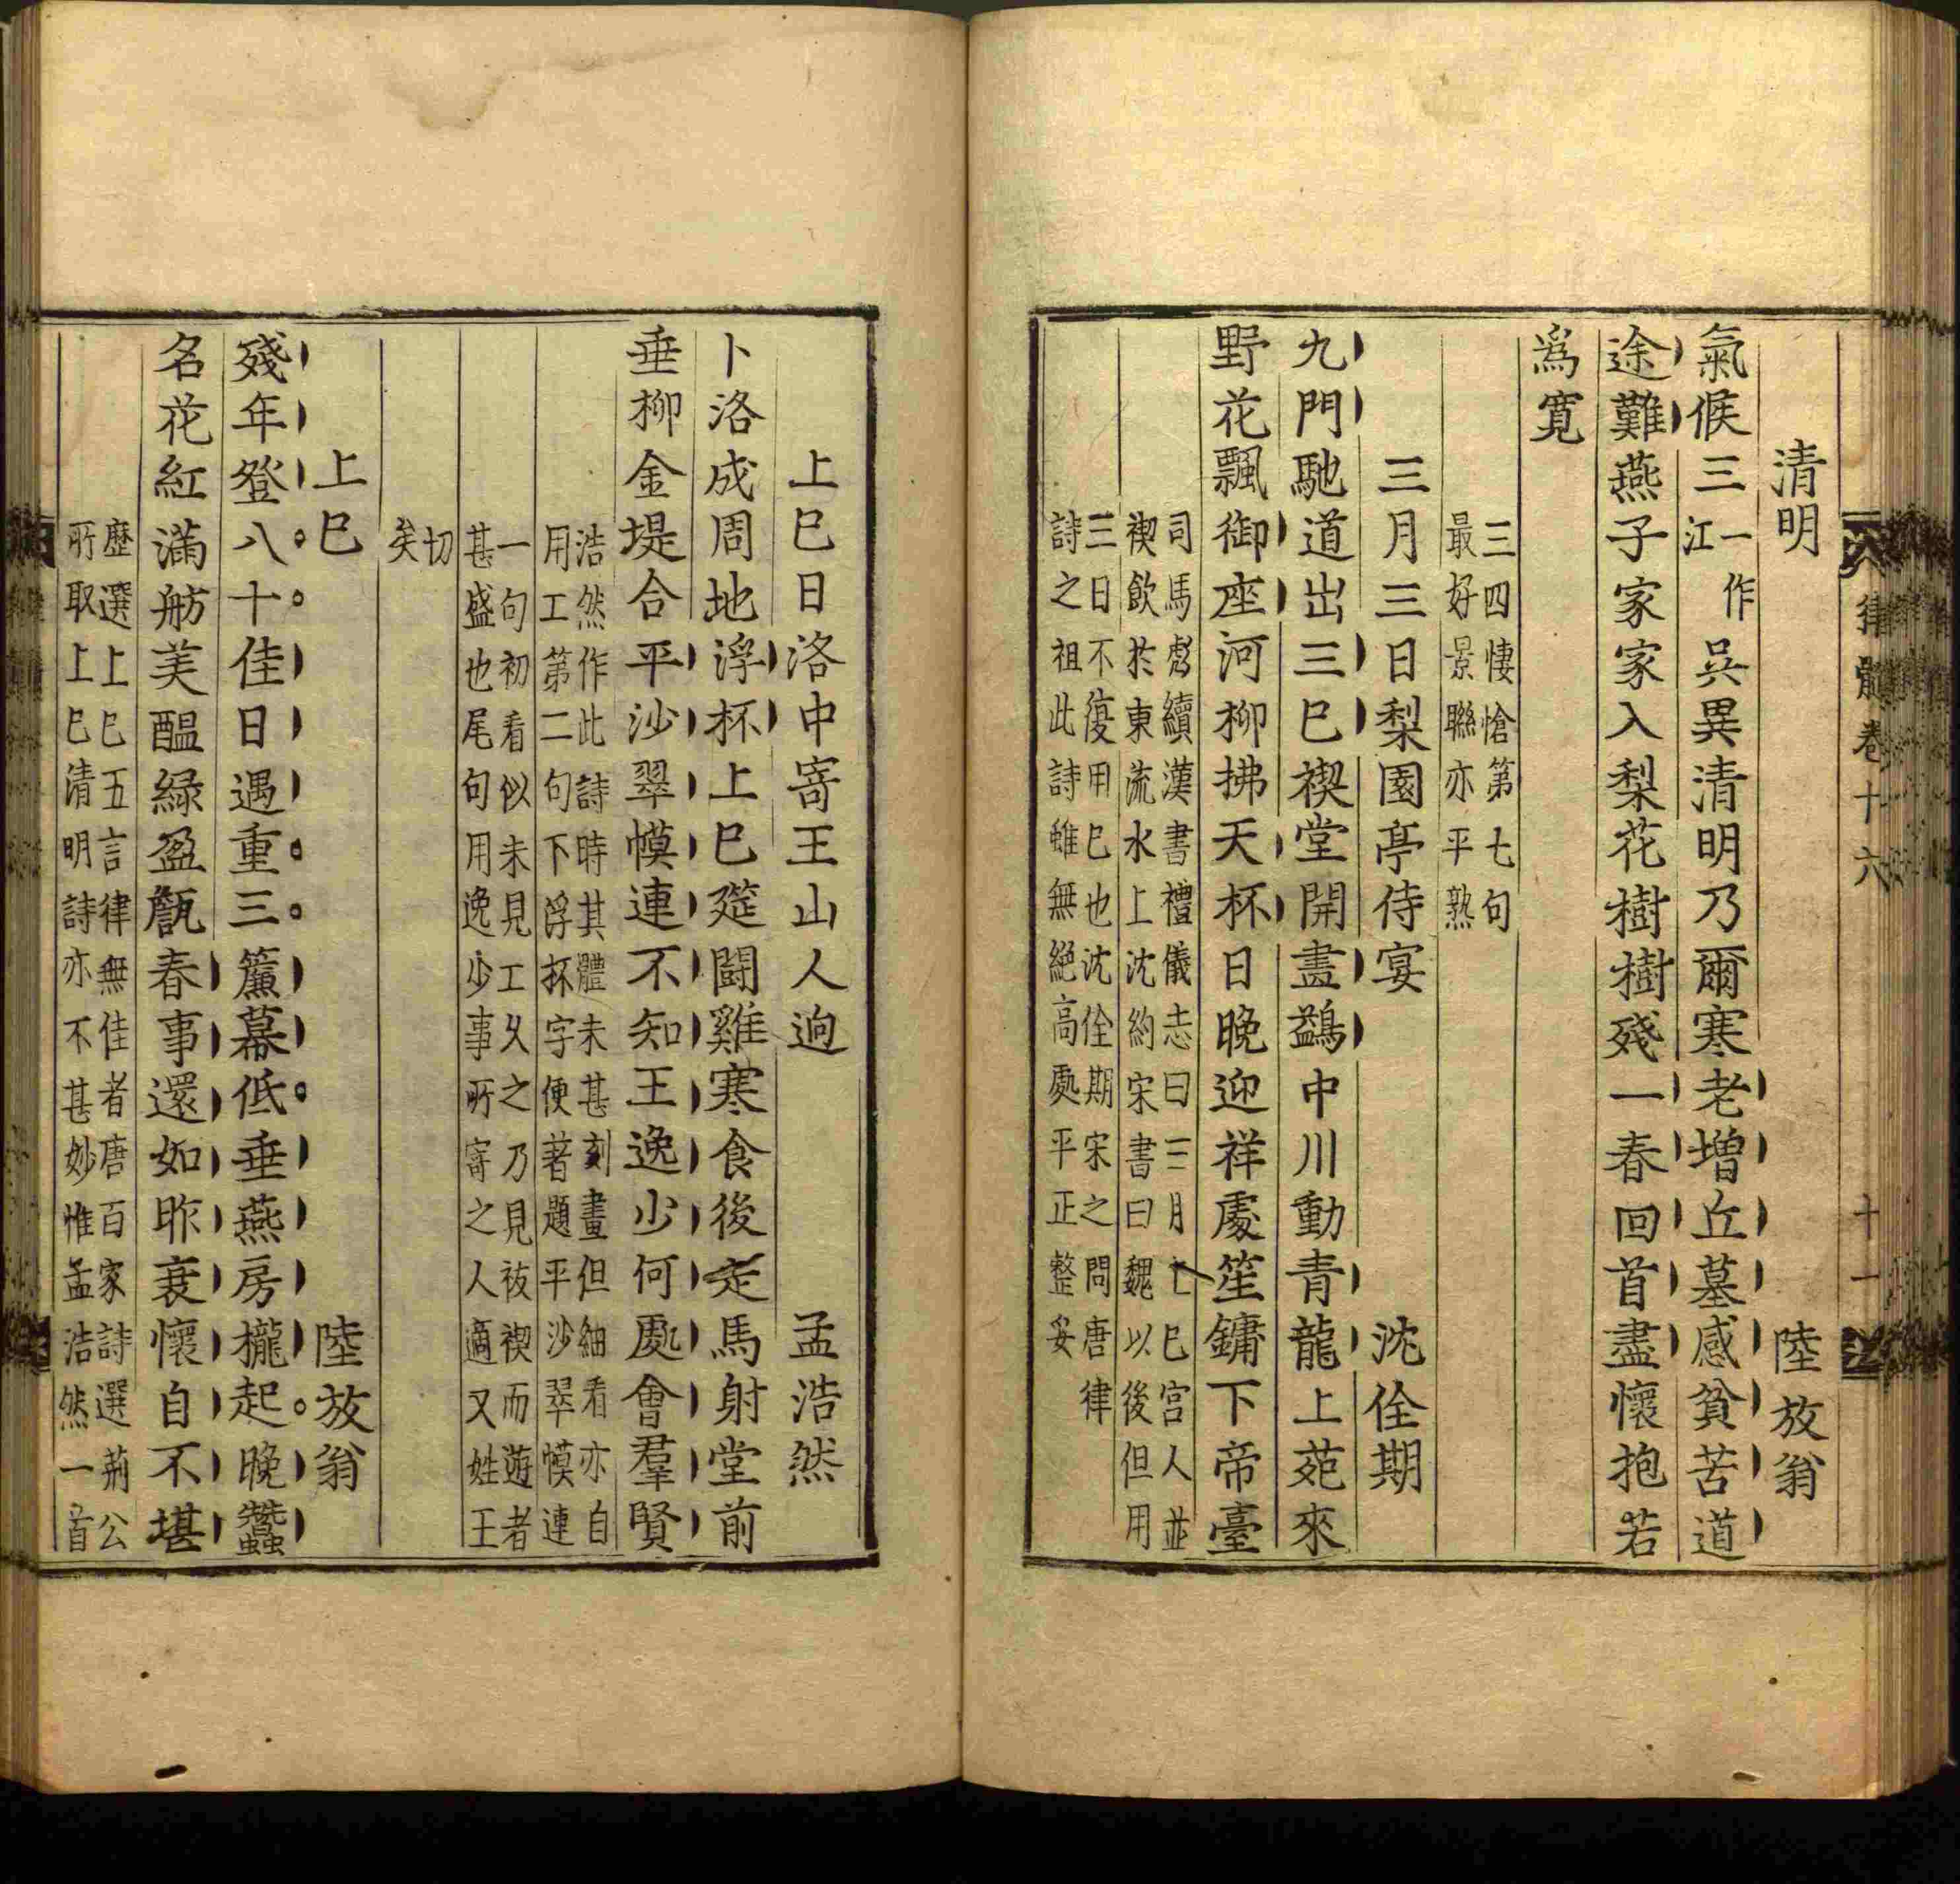 清明　陸放翁
氣候三江一作吳異清明乃爾寒老增丘墓感貧苦道
途難燕子家家入梨花樹樹殘一春回首盡懷抱若
爲寬
三四悽愴第七句
最好景聯亦平熟
三月三日梨園亭侍宴　沈佺期
九門馳道出三巳禊堂開盡鷁中川動青龍上苑來
野花飄御座河柳拂天杯日晚迎祥處笙鏞下帝臺
司馬彪續漢書禮儀志曰三月上巳宮人並
禊飲於東流水上沈約宋書曰魏以後但用
三日不復用巳也沈佺期宋之問唐律
詩之祖此詩雖無絕高處平正整妥
律髓卷十六　十一
上巳日洛中寄王山人逈　孟浩然
卜洛成周地浮杯上巳筵鬭雞寒食後走馬射堂前
垂柳金堤合平沙翠幙連不知王逸少何處會羣賢
浩然作此詩時其體未甚刻畫但細看亦自
用工第二句下浮杯字便著題平沙翠幙連
一句初看似未見工久之乃見祓禊而遊者
甚盛也尾句用逸少事所寄之人適又姓王
切
矣
上巳　陸放翁
殘年登八十佳日遇重三簾幕低垂燕房櫳起晚蠶
名花紅滿舫美醞綠盈甔春事還如昨衰懷自不堪
歷選上巳五言律無佳者唐百家詩選荆公
所取上上巳清明詩亦不甚妙惟孟浩然一首